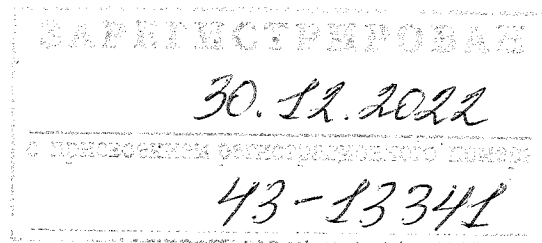 ЗАРЕГИСТРИРОВАН
30.12.2022
с присвоением регистрационного номера
43-13341